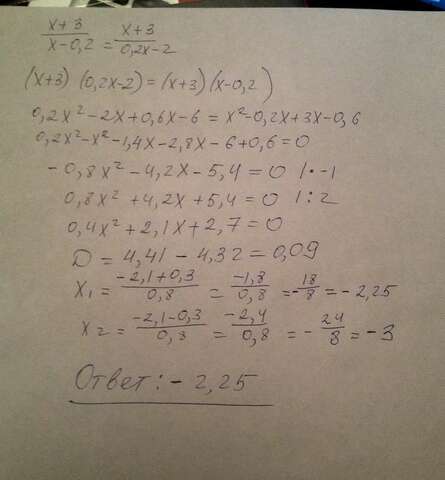 (x+3)/(x-0,2) = (x+3)/(0,2x-2)
(x+3) (0,2x-2) = (x+3) (x-0,2)
0,2x² - 2x + 0,6x - 6 = x² - 0,2x + 3x - 0,6
0,2x² - x² - 1,4x - 2,8x - 6 + 0,6 = 0
- 0,8x² - 4,2x - 5,4 = 0 | · -1
0,8x² + 4,2x + 5,4 = 0 | : 2
0,4x² + 2,1x + 2,7 = 0
D = 4,41 - 4,32 = 0,09
x₁ = (-2,1+0,3)/0,8 = -1,8/0,8 = -18/8 = -2,25
x₂ = (-2,1-0,3)/0,8 = -2,4/0,8 = -24/8 = -3
Ответ: - 2,25